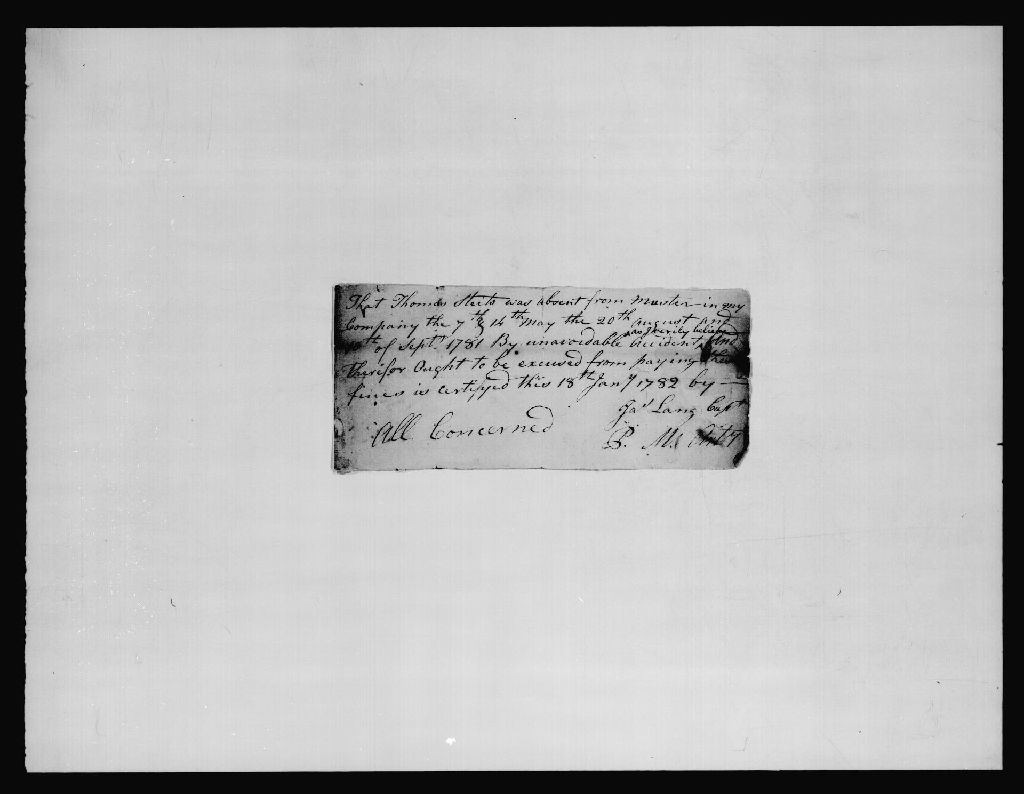 That Thomas Steets was absent from muster in my
Company the 7th & 14th May the 20th August And
of Septr 1781 By unavoidable as I verily believe Accident, And
Therefor Ought to be excused from paying the
fines is certifyed this 18th Jany 1782 by —
Jas Lang Capt
All Concerned
P. M.